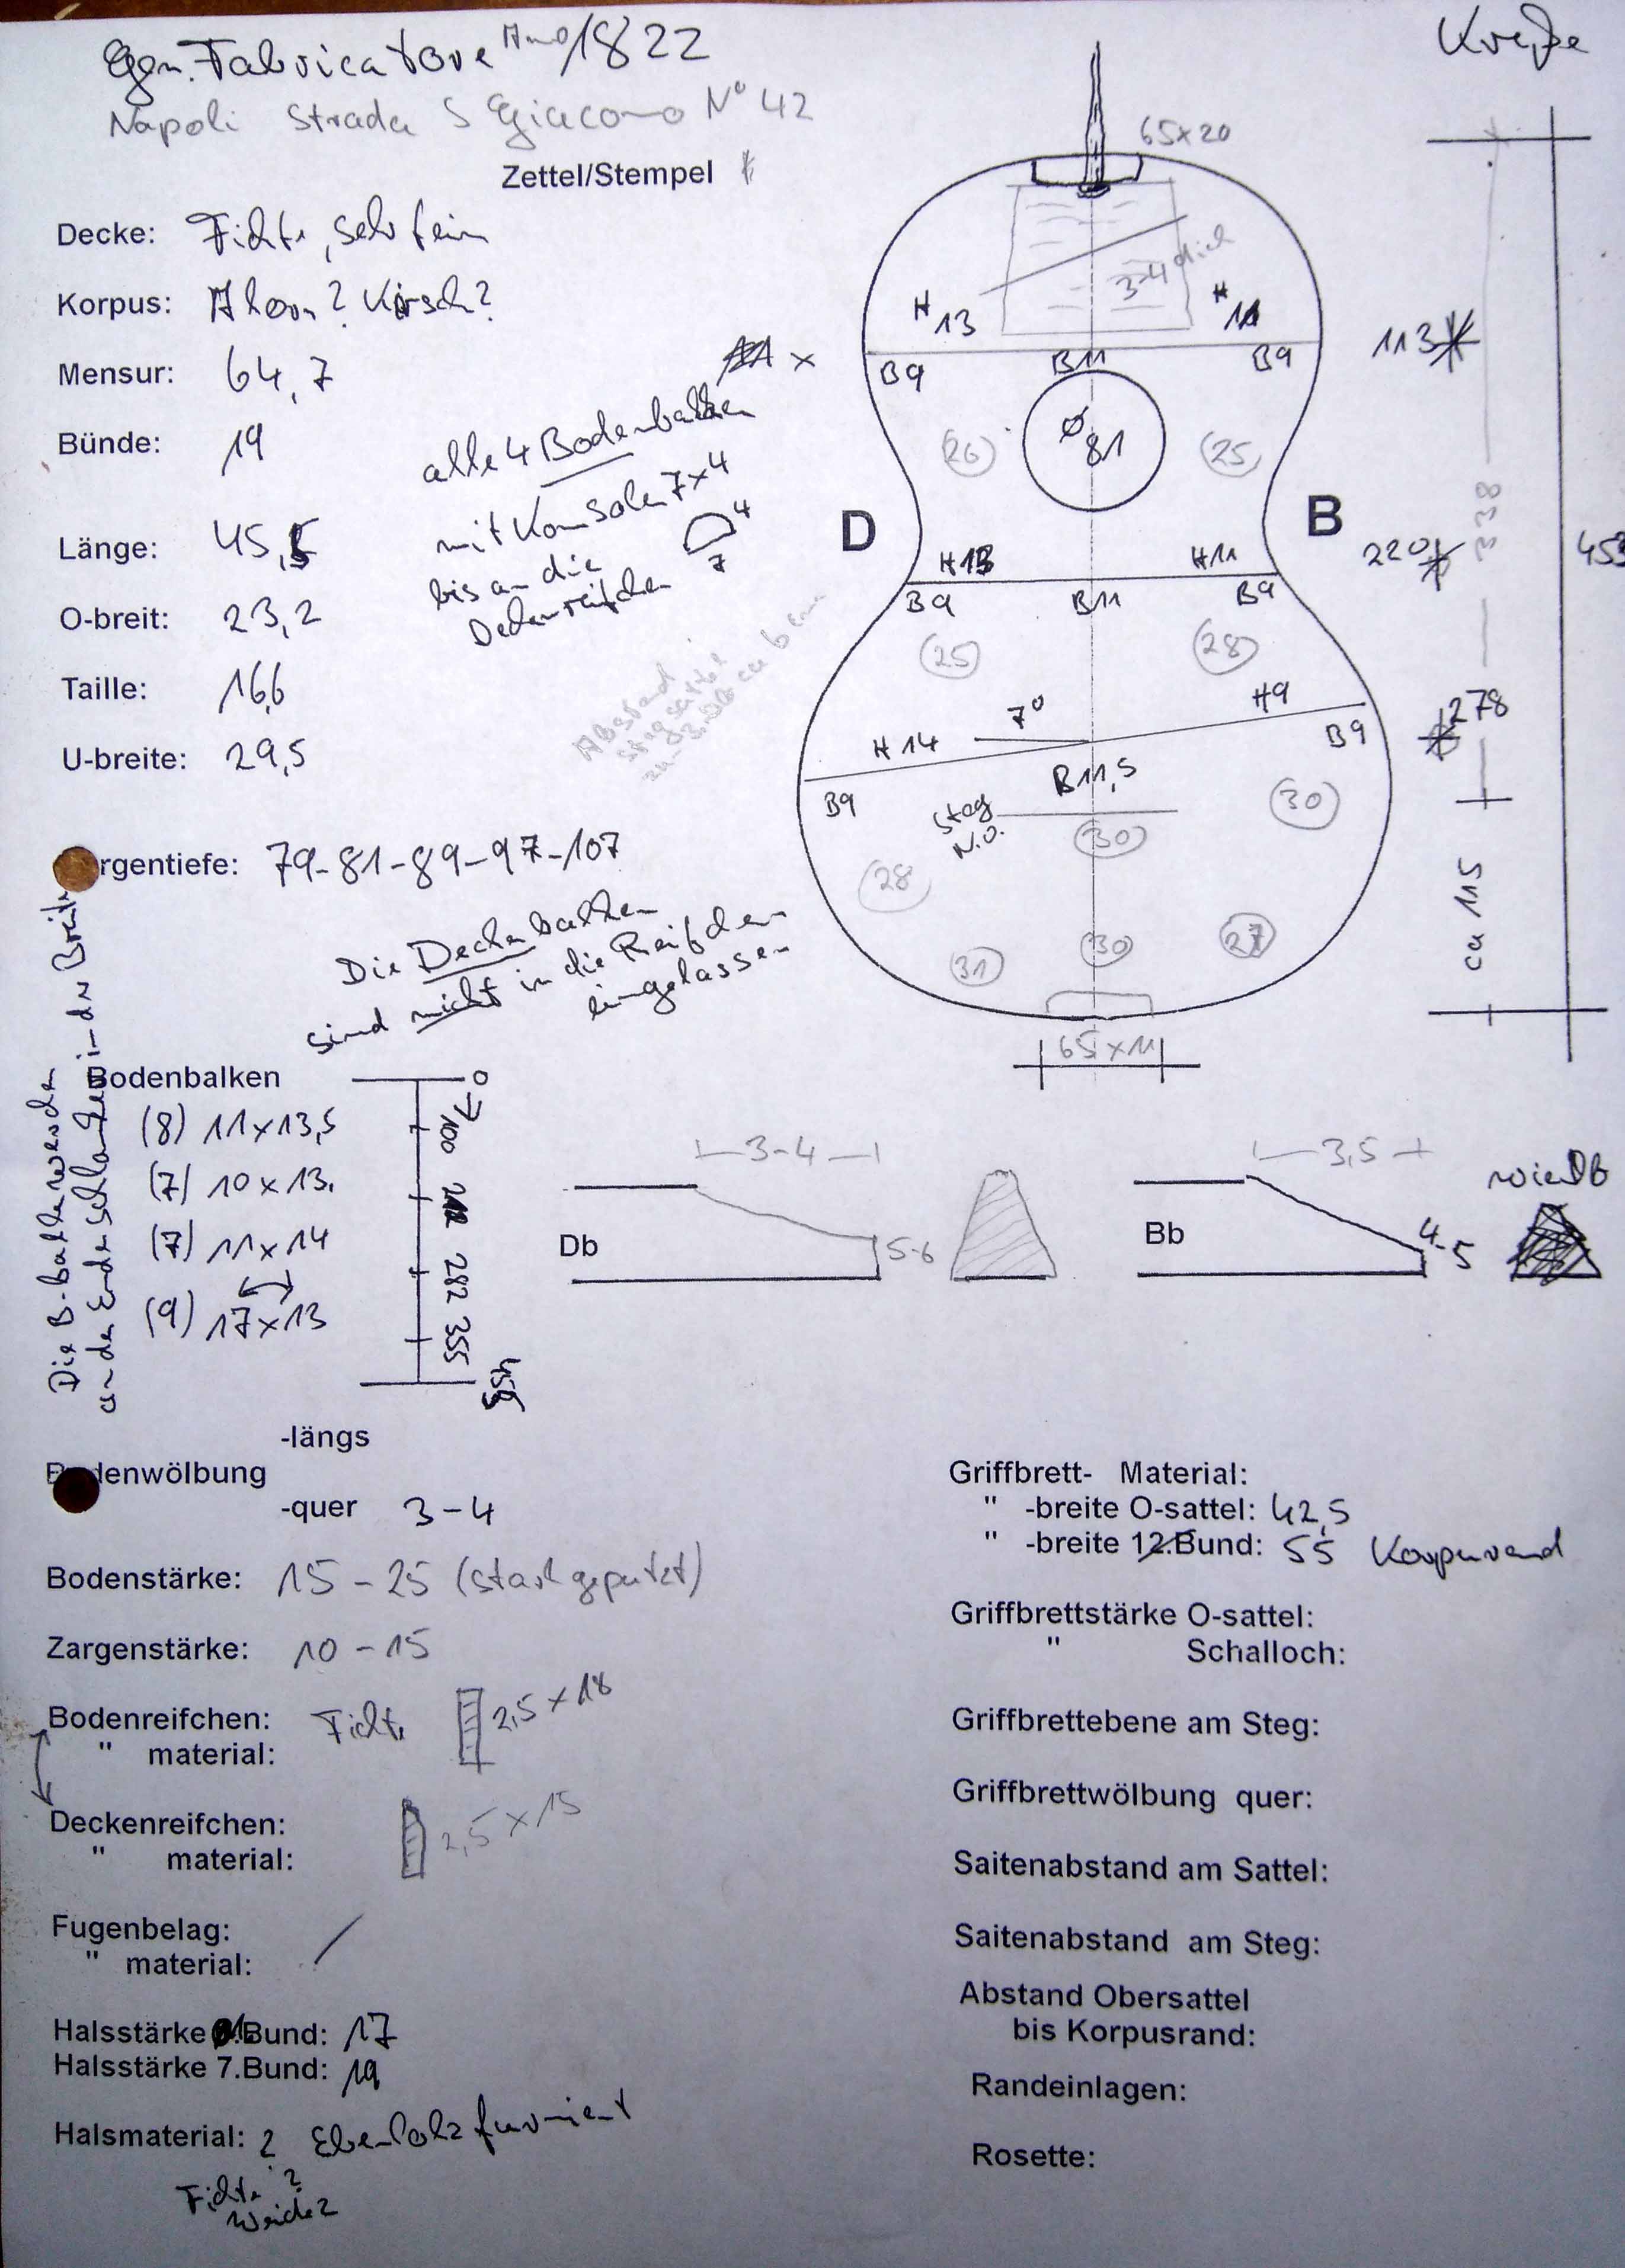 Gen. Fabricatore Anno 1822
Kreße
Napoli Strada S Giacomo N° 42
Zettel/Stempel
65x20
Decke: Fichte, sehr fein
Korpus: Ahorn? Kirsch?
Mensur: 64,7
Bünde: 19
Länge: 45,5
O-breit: 23,2
Taille: 16,6
U-breite: 29,5
rgentiefe: 79-81-89-97-107
alle 4 Bodenbalken
mit Konsolen 7x4
bis an die
Deckenreifchen
4
7
Abstand
Die Deckenbalken
sind nicht in die Reifchen
eingelassen
3-4 dick
H 13
H 11
B9 B11 B9
113
ø 81
26
25
D
B
338
453
H13
H11
B9 B11 B9
220
25
28
7°
H9
H 14
B9
278
B11,5
B9
Steg
N.O.
30
30
28
31
30
27
ca 115
65 x 11
Die B-Balken werden
an den Enden schlanker in der Breite
Bodenbalken
(8) 11x13,5
(7) 10x13,
(7) 11x14
(9) 17x13
0
100
212
282
355
455
3-4
Db
5-6
3,5
Bb
4-5
wie Db
-längs
Bodenwölbung
-quer 3-4
Bodenstärke: 15-25 (stark geputzt)
Zargenstärke: 10-15
Bodenreifchen: Fichte 2,5x18
" material:
Deckenreifchen: 2,5x15
" material:
Fugenbelag: /
" material:
Halsstärke 1.Bund: 17
Halsstärke 7.Bund: 19
Halsmaterial: ? Ebenholz furniert
Fichte?
Weide?
Griffbrett- Material:
" -breite O-sattel: 42,5
" -breite 12.Bund: 55 Korpusrand
Griffbrettstärke O-sattel:
" Schalloch:
Griffbrettebene am Steg:
Griffbrettwölbung quer:
Saitenabstand am Sattel:
Saitenabstand am Steg:
Abstand Obersattel
bis Korpusrand:
Randeinlagen:
Rosette: